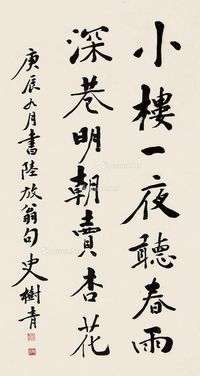 小樓一夜聽春雨
深巷明朝賣杏花
庚辰九月書陸放翁句史樹青